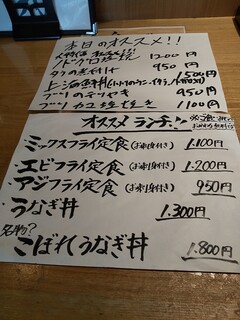 本日のオススメ!!
1200円
950円
1500円
ブリのテリヤキ 950円
ブリカマ塩焼き 1100円
オススメ ランチ!!
・ミックスフライ定食(お刺身付き) 1.100円
・エビフライ定食(お刺身付き) 1.200円
・アジフライ定食(お刺身付き) 950円
・うなぎ丼 1.300円
名物?
・こぼれうなぎ丼 1.800円